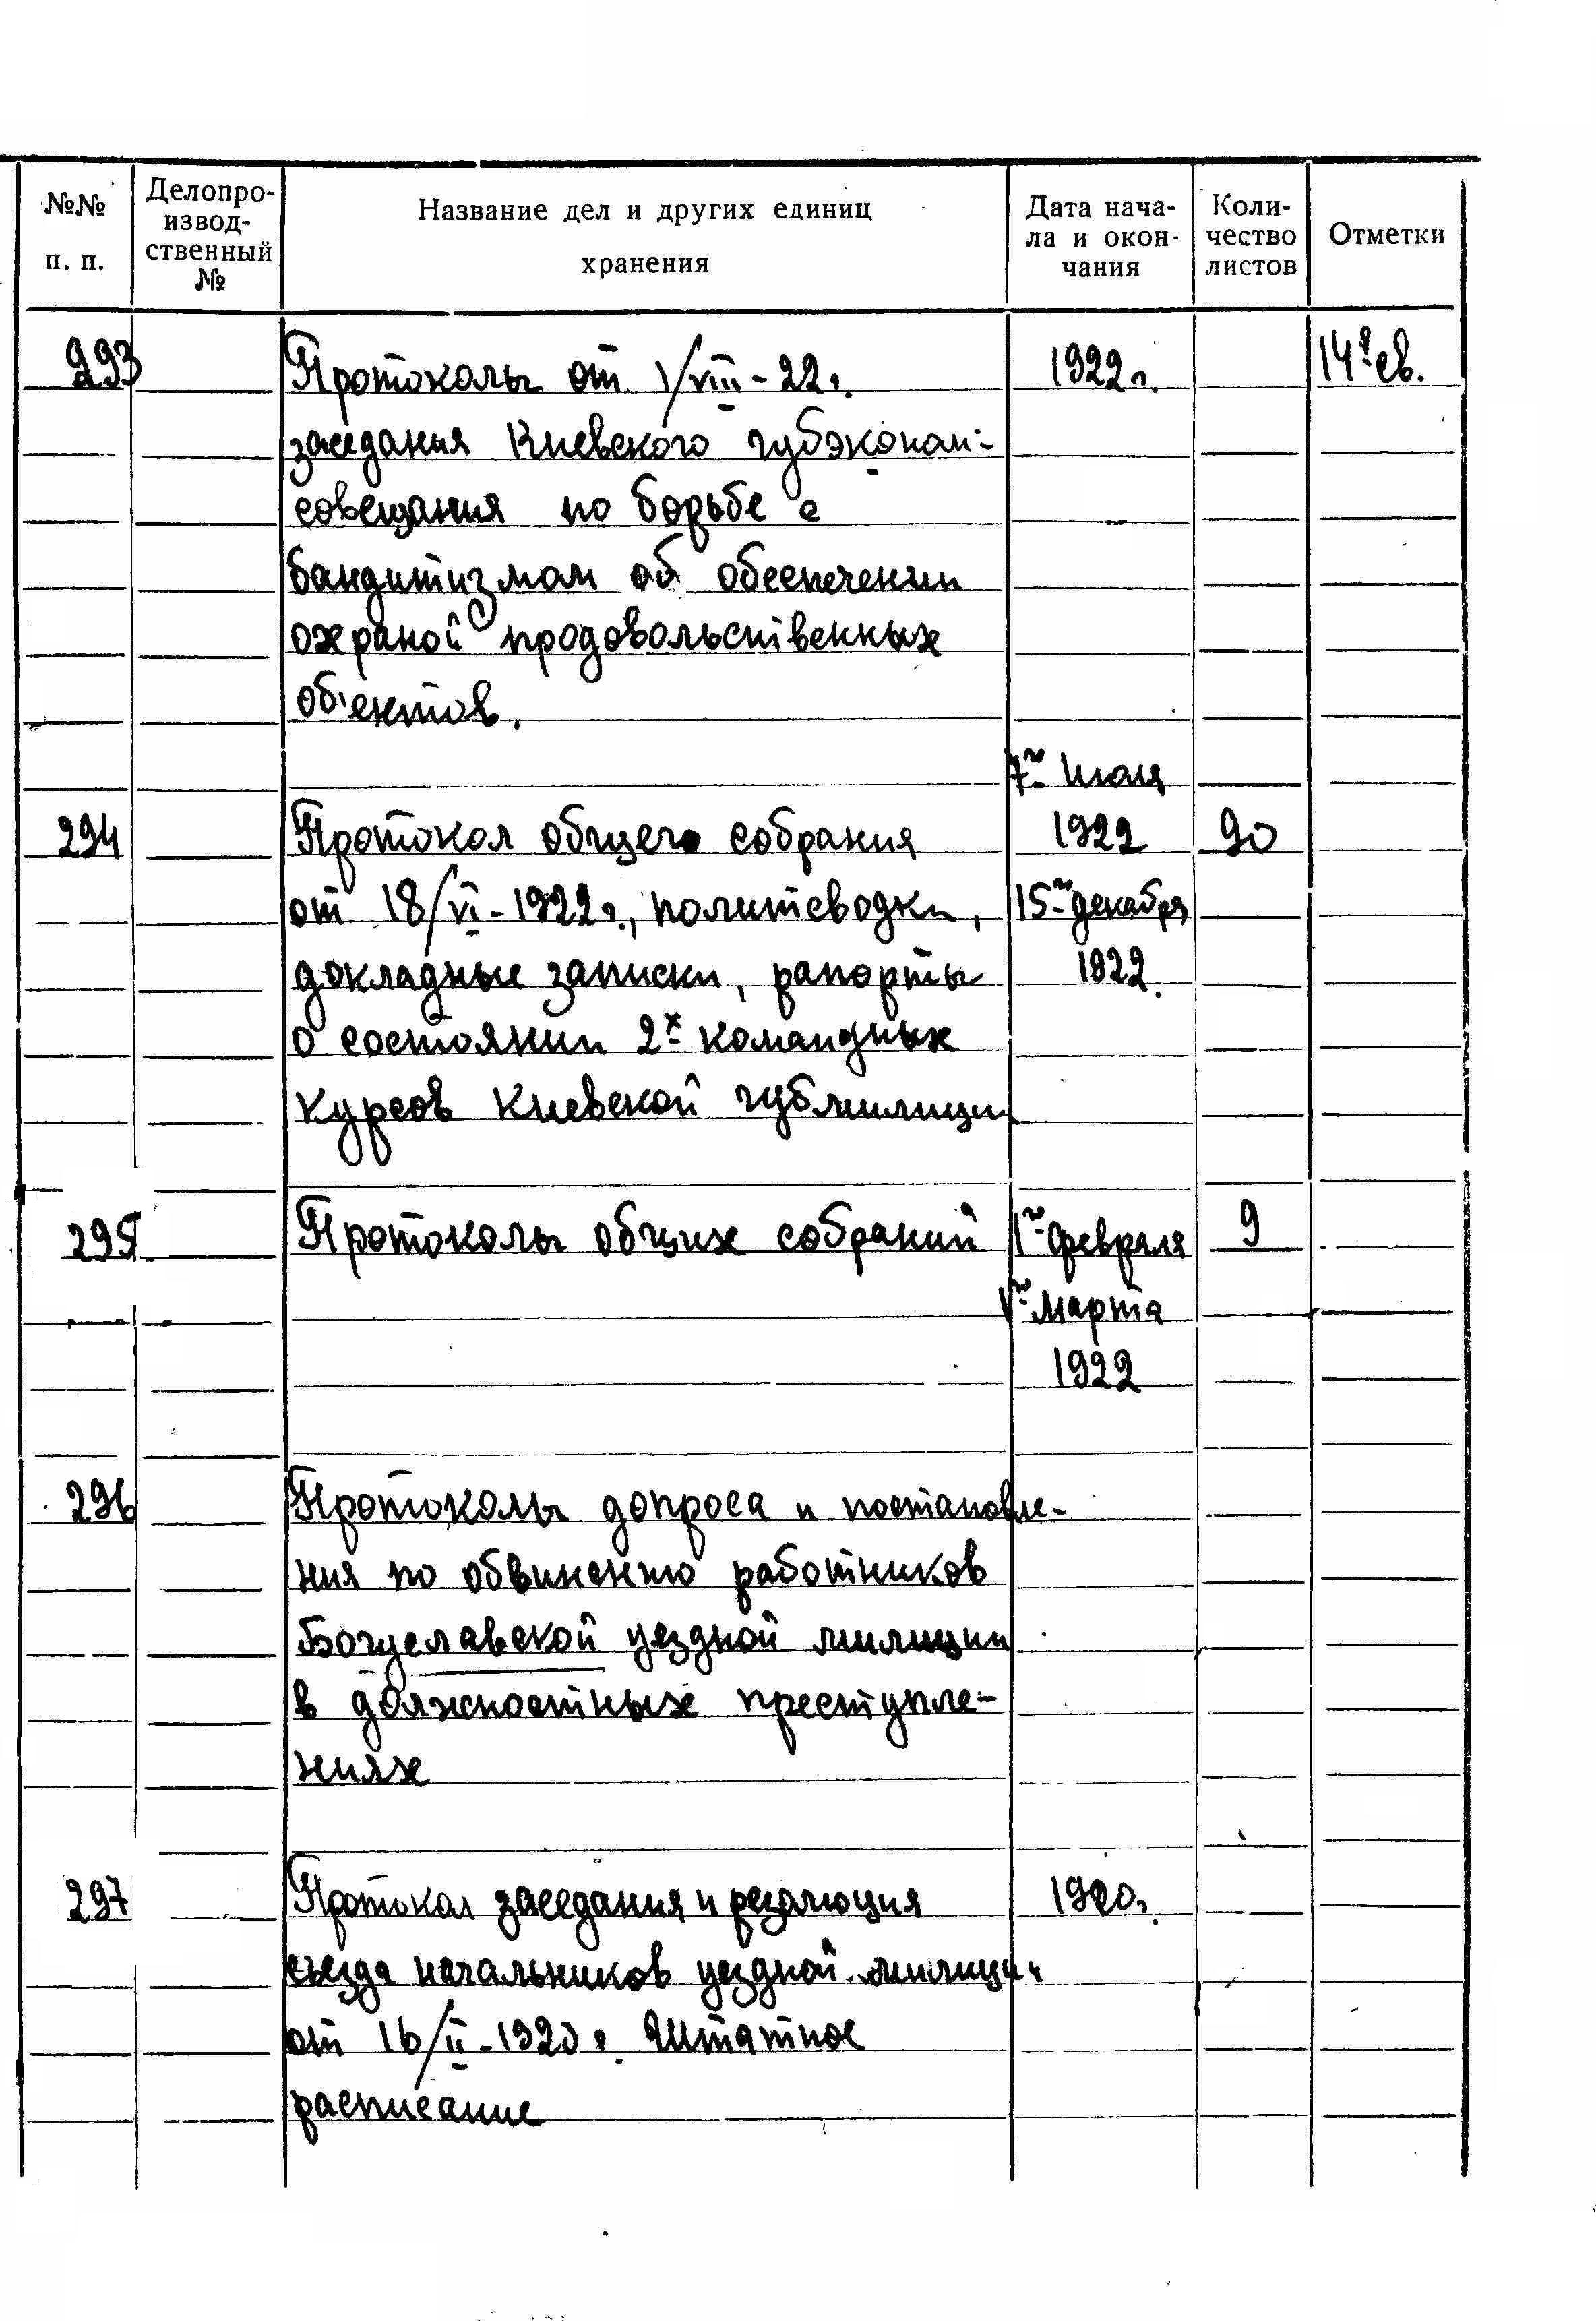 №№ п. п.
Делопро-
извод-
ственный
№
Название дел и других единиц
хранения
Дата нача-
ла и окон-
чания
Коли-
чество
листов
Отметки
293 Протоколы от 1/VIII-22г. 1922г. св.
заседания Киевского губэконом-
совещания по борьбе с
бандитизмом об обеспечении
охраной продовольственных
об'ектов.
7го июля
294 Протокол общего собрания 1922 90
от 18/VI-1922г., политсводки, 15го декабря
докладные записки, рапорты 1922
о состоянии 2х командных
курсов Киевской губмилиции
295 Протоколы общих собраний 1го февраля 9
1го марта
1922
296 Протоколы допроса и постановле-
ния по обвинению работников
Богуславской уездной милиции
в должностных преступле-
ниях
297 Протокол заседания и резолюция 1920г.
съезда начальников уездной милиции
от 16/II-1920г. Штатное
расписание